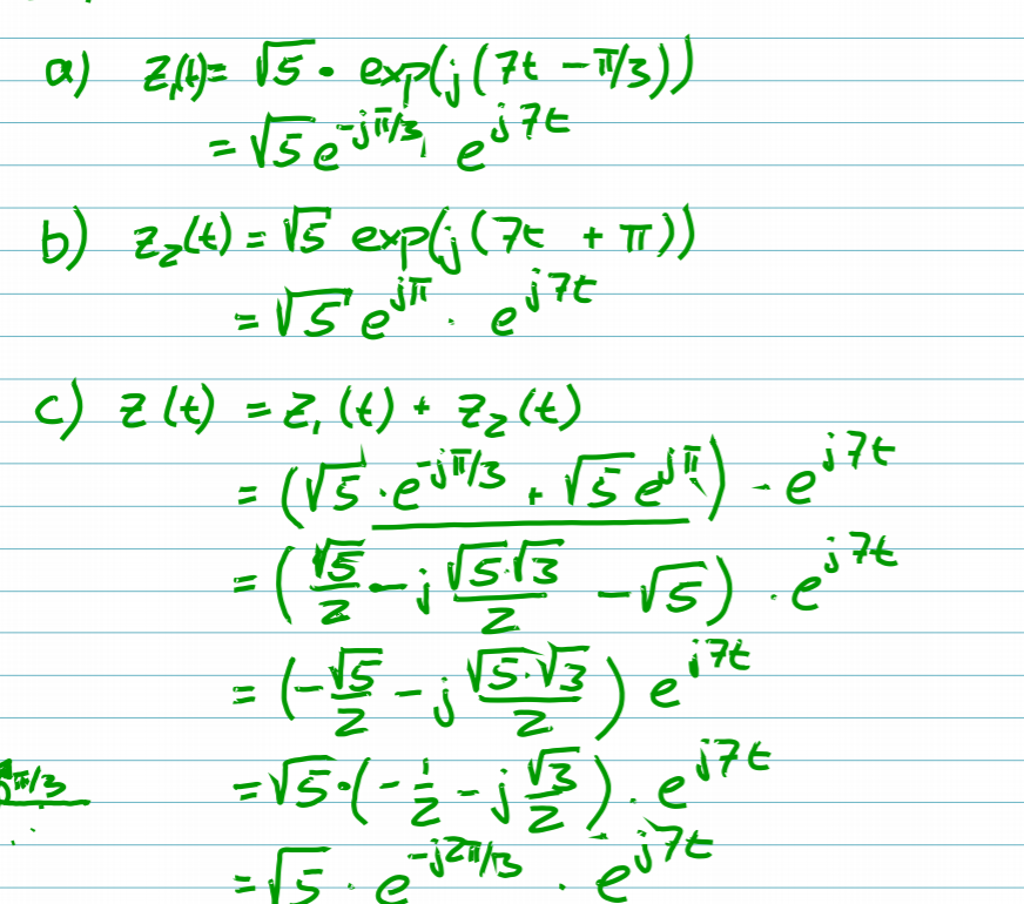 a) z₁(t) = √5 · exp(j(7t − π/3))
= √5 e^{-jπ/3} e^{j7t}
b) z₂(t) = √5 exp(j(7t + π))
= √5 e^{jπ} · e^{j7t}
c) z(t) = z₁(t) + z₂(t)
= (√5 · e^{-jπ/3} + √5 e^{jπ}) · e^{j7t}
= (√5/2 − j √5·√3/2 − √5) · e^{j7t}
= (−√5/2 − j √5·√3/2) e^{j7t}
π/3
= √5·(−1/2 − j √3/2) · e^{j7t}
= √5 · e^{-j2π/3} · e^{j7t}